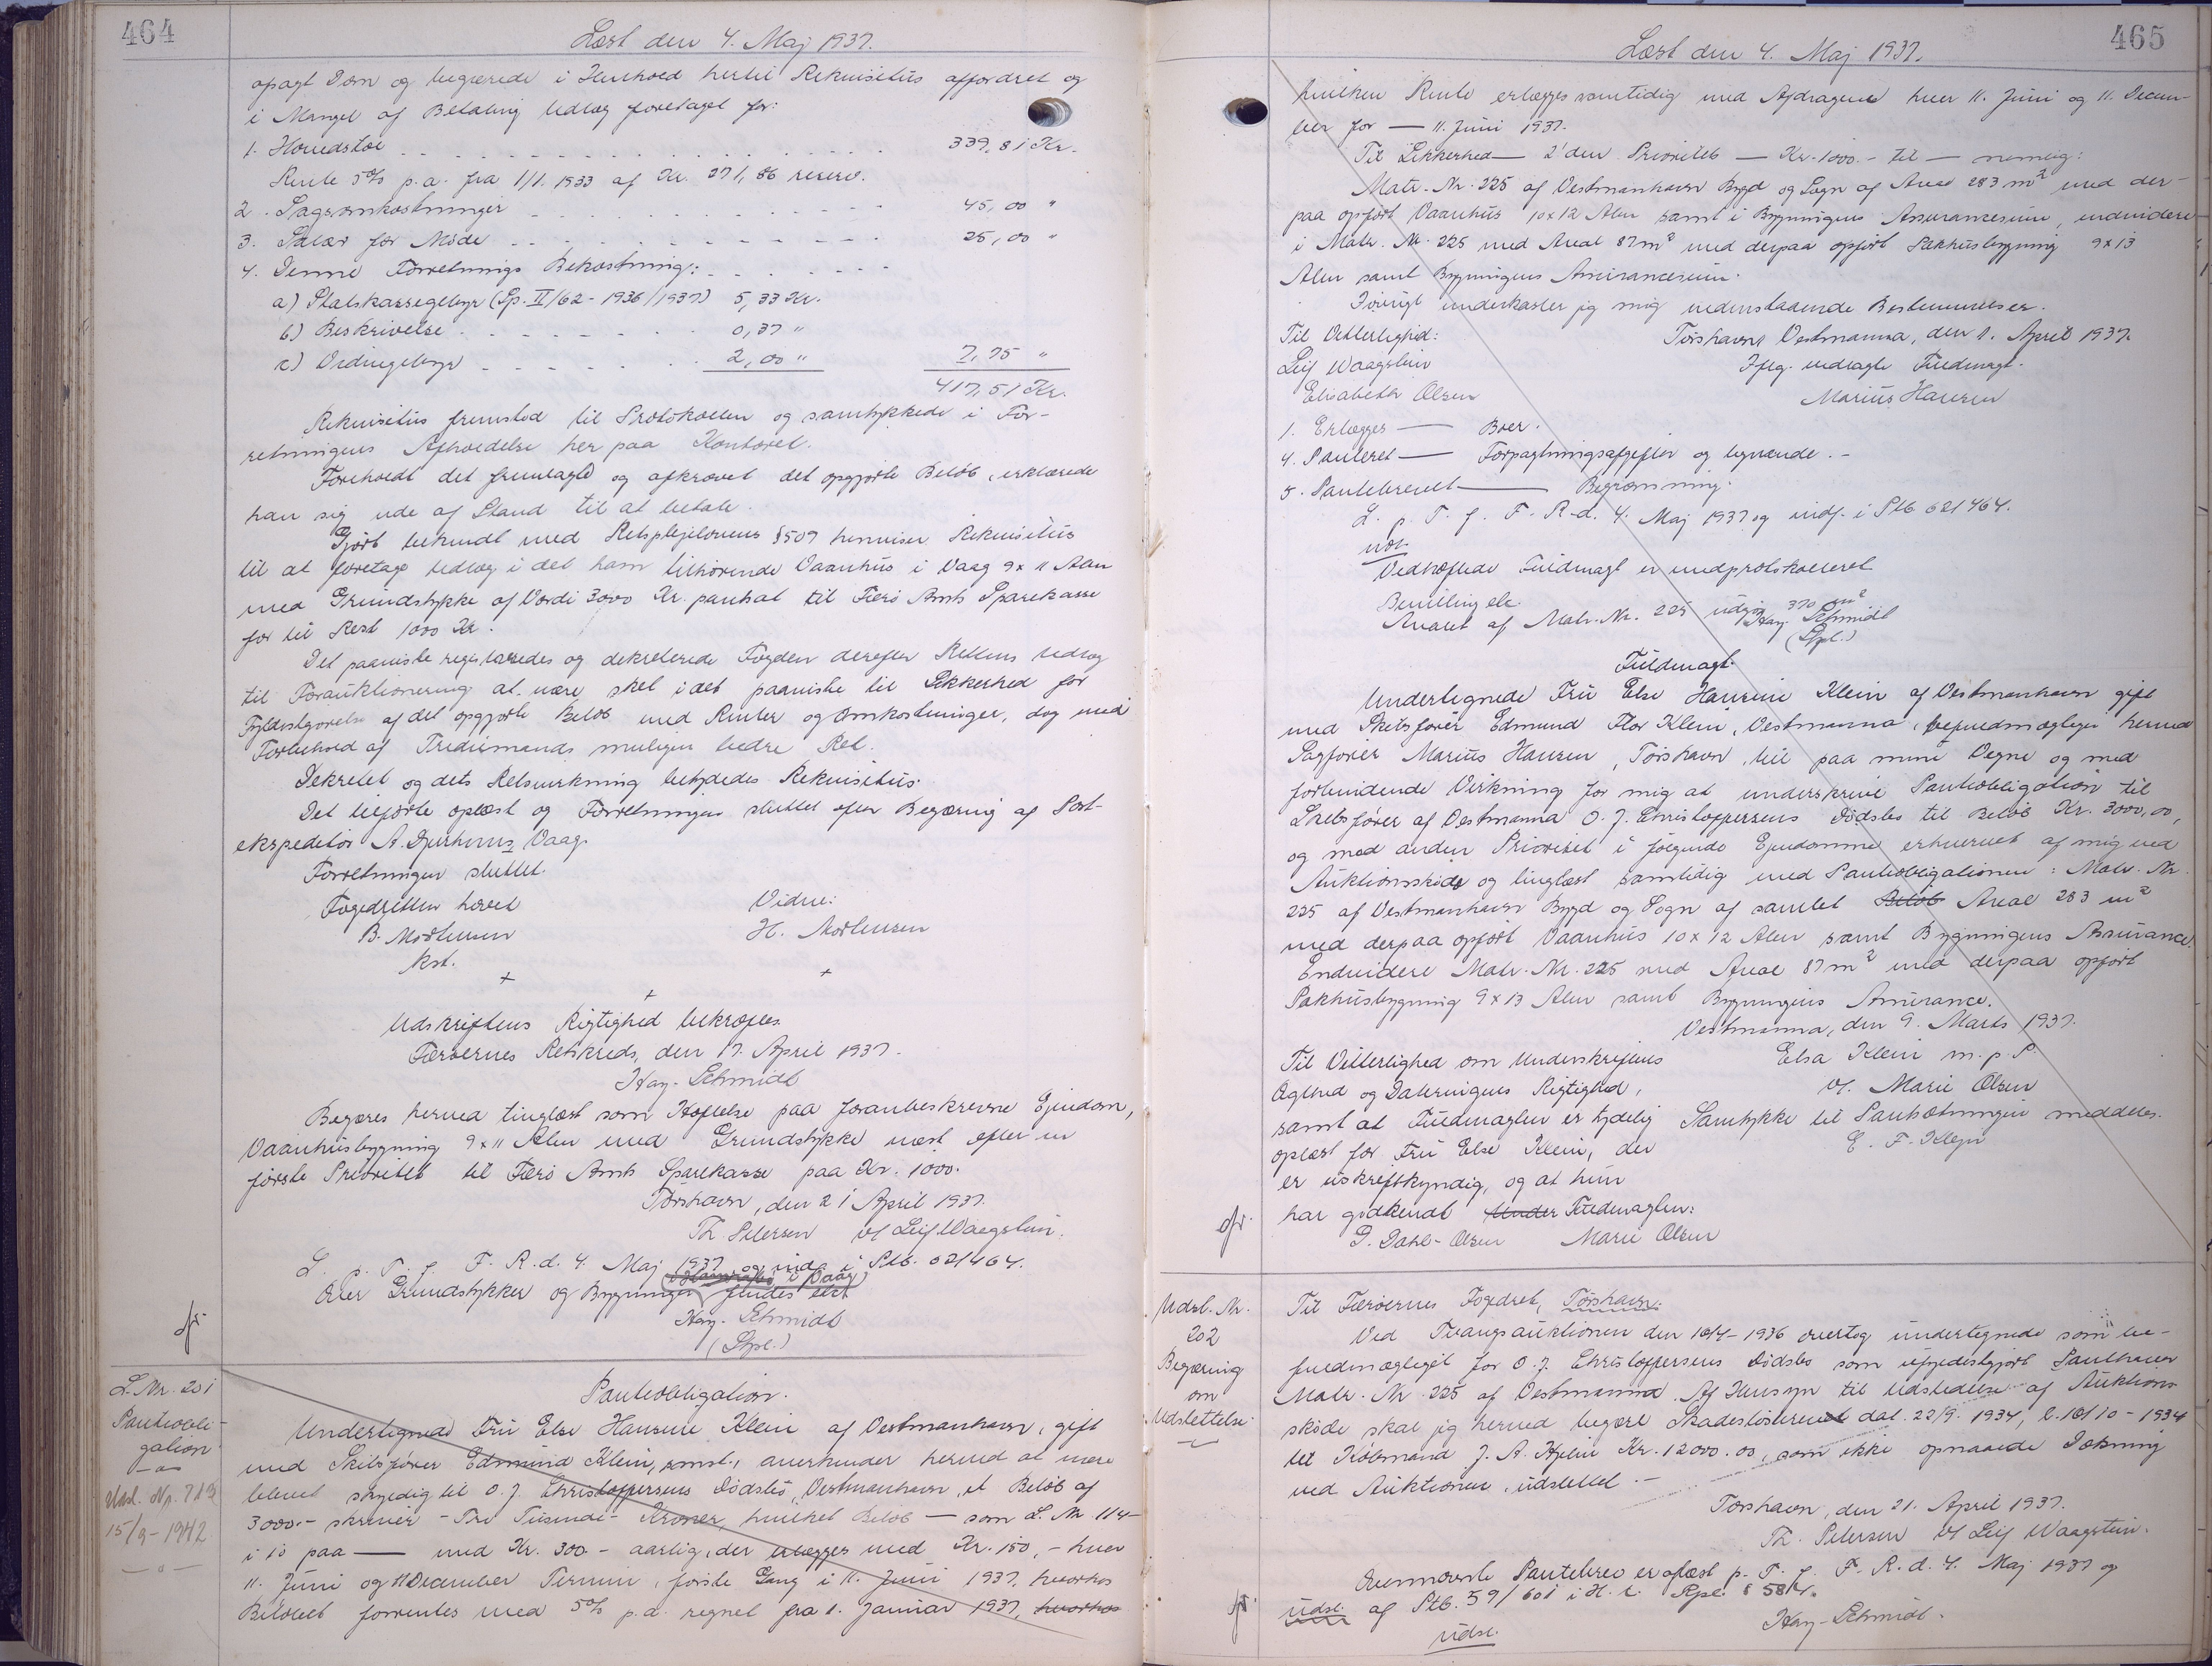 464
Læst den 4. Maj 1937.
opsagt Dom og begærede i Henhold hertil Rekvisitus affordret og
i Mangel af Betaling Udlæg foretaget for:
1. Hovedstol 339,81 Kr.
Rente 5% p.a. fra 1/1. 1933 af Kr. 271,86 reserv.
2. Sagsomkostninger 45,00 "
3. Salær for Møde 25,00 "
4. Denne Forretnings Bekostning:
a) Statskassegebyr (Sp. II/62 - 1936/1937) 5,33 Kr.
b) Beskrivelse 0,37 "
c) Vidnegebyr 2,00 " 7,75 "
417,51 Kr.
Rekvisitus fremstod til Protokollen og samtykkede i For-
retningens Afholdelse her paa Kontoret.
Foreholdt det fremlagte og afkrævet det opgjorte Beløb, erklærede
han sig ude af Stand til at betale.
Gjort bekendt med Retsplejelovens §507 henviser Rekvisitus
til at foretage Udlæg i det ham tilhørende Vaanhus i Vaag 9 x 11 Alen
med Grundstykke af Værdi 3000 Kr. pantsat til Færø Amts Sparekasse
for til Rest 1000 Kr.
Det paaviste registreredes og dekreterede Fogden derefter Rettens Udlæg
til Forauktionering at være sket i det paaviste til Sikkerhed for
Fyldestgørelse af det opgjorte Beløb med Renter og Omkostninger, dog med
Forbehold af Trediemands muligen bedre Ret.
Dekretet og dets Retsvirkning betydedes Rekvisitus.
Det tilførte oplæst og Forretningen sluttet efter Begæring af Post-
ekspeditør A. Djurhuus, Vaag.
Forretningen sluttet.
Fogedretten hævet Vidne:
B. Mortensen H. Mortensen
kst.
+ + +
Udskriftens Rigtighed bekræftes.
Færøernes Retskreds, den 17. April 1937.
Hay-Schmidt
Begæres herved tinglæst som Hæftelse paa foranbeskrevne Ejendom,
Vaanhusbygning 9 x 11 Alen med Grundstykke næst efter en
første Prioritet til Færø Amts Sparekasse paa Kr. 1000.
Tórshavn, den 21 April 1937.
Th. Petersen v/ Leif Waagstein.
L. p. T. f. F. R. d. 4. Maj 1937 og indf. i Ptb. 621464.
Over Grundstykker og Bygninger i Vaag findes
Hay-Schmidt
(Stpl.)
L. Nr. 201
Pantobli-
gation
Udsl. Np. 713
15/9-1942
Pantobligation.
Undertegnede Fru Else Hansine Klein af Vestmanhavn, gift
med Skibsfører Edmund Klein, smst., anerkender herved at være
bleven skyldig til O. J. Christoffersens Dødsbo, Vestmanhavn, et Beløb af
3000.- skriver - Tre Tusinde - Kroner, hvilket Beløb — som L. Nr 114 -
i 10 paa — med Kr. 300 - aarlig, der erlægges med Kr. 150,- hver
11. Juni og 11 December Termin, første Gang i 11. Juni 1937, hvorhos
Beløbet forrentes med 5% p.a. regnet fra 1. Januar 1937, hvorhos
465
Læst den 4. Maj 1937.
hvilken Rente erlægges samtidig med Afdragene hver 11. Juni og 11. Decem-
ber for — 11. Juni 1937.
Til Sikkerhed — 2'den Prioritet — Kr. 1000.- til — nemlig:
Matr. Nr. 225 af Vestmanhavn Bygd og Sogn af Areal 283 m² med der-
paa opført Vaanhus 10 x 12 Alen samt i Bygningens Assurancesum, endvidere
i Matr. Nr. 225 med Areal 87 m² med derpaa opført Pakhusbygning 9 x 13
Alen samt Bygningens Assurancesum.
Iøvrigt underkaster jeg mig nedenstaaende Bestemmelser.
Til Vitterlighed: Tórshavn, Vestmanna, den 1. April 1937.
Leif Waagstein Iflg. vedlagte Fuldmagt.
Elisabeth Olsen Marius Hansen
1. Erlægges — Boer.
4. Panteret — Forpagtningsafgifter og lignende.-
5. Pantebrevet — Begrænsning.
L. p. T. f. F. R. d. 4. Maj 1937 og indf. i Ptb 621464.
Vedhæftede Fuldmagt er medprotokolleret
Bevilling
Arealet af Matr. Nr. 225 udgør 370 m²
Hay-Schmidt
(Stpl.)
Fuldmagt.
Undertegnede Fru Else Hansine Klein af Vestmanhavn gift
med Skibsfører Edmund Flor Klein, Vestmanna, befuldmægtiger herved
Sagfører Marius Hansen, Tórshavn, til paa mine Vegne og med
forbindende Virkning for mig at underskrive Pantobligation til
Skibsfører af Vestmanna O. J. Christoffersens Dødsbo til Beløb Kr. 3000,00,
og med anden Prioritet i følgende Ejendomme erhvervet af mig ved
Auktionsskøde og tinglæst samtidig med Pantobligationen: Matr. Nr.
225 af Vestmanhavn Bygd og Sogn af samlet Beløb Areal 283 m²
med derpaa opført Vaanhus 10 x 12 Alen samt Bygningens Assurance.
Endvidere Matr. Nr. 225 med Areal 87 m² med derpaa opført
Pakhusbygning 9 x 13 Alen samt Bygningens Assurance.
Vestmanna, den 9. Marts 1937.
Til Vitterlighed om Underskriftens Elsa Klein m. p. P.
Ægthed og Dateringens Rigtighed, v/. Marie Olsen
samt at Fuldmagten er tydelig Samtykke til Pantsætningen meddeles.
oplæst for Fru Else Klein, der E. F. Klein
er uskriftkyndig, og at hun
har godkendt Under Fuldmagten:
D. Dahl-Olsen Marie Olsen
Udsl. Nr.
202
Begæring
om
Udslettelse
Til Færøernes Fogedret, Tórshavn.
Ved Tvangsauktionen den 16/4-1936 overtog undertegnede som be-
fuldmægtiget for O. J. Christoffersens Dødsbo som ufyldestgjort Panthaver
Matr. Nr. 225 af Vestmanna. Af Hensyn til Udstedelse af Auktions-
skøde skal jeg herved begære Skadesløsbrevet dat. 22/9. 1934, l. 16/10-1934
til Købmand J. A. Kjelin Kr. 12000.00, som ikke opnaaede Dækning
ved Auktionen, udslettet.-
Tórshavn, den 21. April 1937.
Th. Petersen v/ Leif Waagstein.
Ovennævnte Pantebrev er aflæst p. T. f. F. R. d. 4. Maj 1937 og
udsl. af Ptb. 59/601 i H. t. Rpl. § 584.
udsl. Hay-Schmidt.